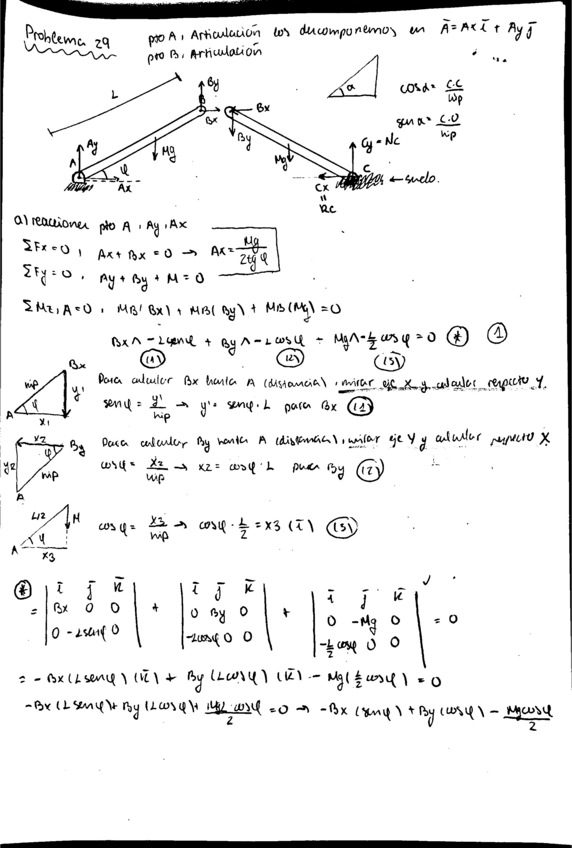 Problema 29
pto A, Articulación los descomponemos en Ā = Ax ī + Ay j̄
pto B, Articulación
L
By
B
Bx
Bx
By
α
cosα = C.C / hip
senα = C.O / hip
Ay
A
Mg
φ
Ax
Mg
Cy = Nc
C
Cx
=
Rc
← suelo.
a) reacciones pto A, Ay, Ax
ΣFx = 0, Ax + Bx = 0 → Ax = Mg / 2tgφ
ΣFy = 0, Ay + By + M = 0
ΣMz, A = 0, MB(Bx) + MB(By) + MB(Mg) = 0
Bx ∧ -L senφ + By ∧ -L cosφ - Mg ∧ -L/2 cosφ = 0 * ①
(1) (2) (3)
Bx
hip
φ
y'
A
x1
Para calcular Bx hasta A (distancia), mirar eje X y calcular respecto Y.
senφ = y'/hip → y' = senφ · L para Bx (1)
x2
By
φ
y2
hip
A
Para calcular By hasta A (distancia), mirar eje Y y calcular respecto X
cosφ = x2/hip → x2 = cosφ · L para By (2)
L/2
M
φ
A
x3
cosφ = x3/hip → cosφ · L/2 = x3 (ī) (3)
*
= | ī j̄ k̄ | + | ī j̄ k̄ | + | ī j̄ k̄ | = 0
| Bx 0 0 | | 0 By 0 | | 0 -Mg 0 |
| 0 -Lsenφ 0 | | -Lcosφ 0 0 | | -L/2 cosφ 0 0 |
= - Bx (L senφ) (k̄) + By (L cosφ) (k̄) - Mg (L/2 cosφ) = 0
-Bx (L senφ) + By (L cosφ) + MgL cosφ / 2 = 0 → -Bx (senφ) + By (cosφ) - Mg cosφ / 2